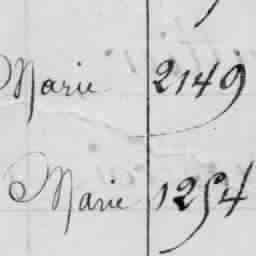 Marie 2149
Marie 1254